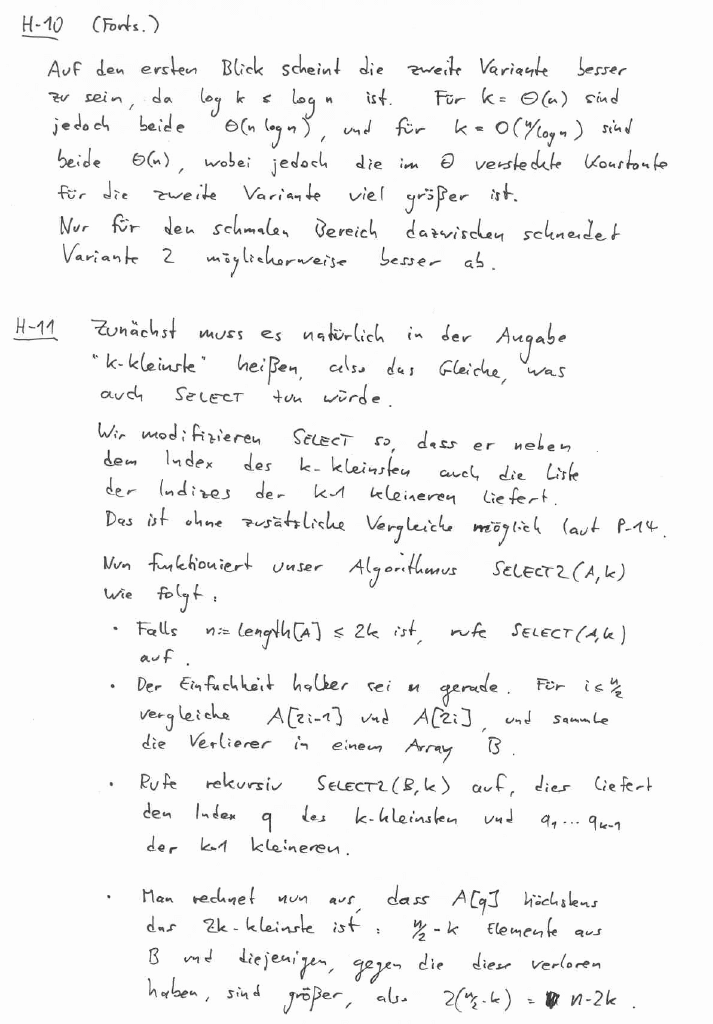 H-10 (Forts.)
Auf den ersten Blick scheint die zweite Variante besser
zu sein, da log k ≤ log n ist. Für k = Θ(n) sind
jedoch beide Θ(n log n), und für k = O(n/log n) sind
beide Θ(n), wobei jedoch die im Θ versteckte Konstante
für die zweite Variante viel größer ist.
Nur für den schmalen Bereich dazwischen schneidet
Variante 2 möglicherweise besser ab.
H-11 Zunächst muss es natürlich in der Angabe
"k-kleinste" heißen, also das Gleiche, was
auch SELECT tun würde.
Wir modifizieren SELECT so, dass er neben
dem Index des k-kleinsten auch die Liste
der Indizes der k-1 kleineren liefert.
Das ist ohne zusätzliche Vergleiche möglich laut P-14.
Nun funktioniert unser Algorithmus SELECT2(A,k)
wie folgt:
• Falls n:= length[A] ≤ 2k ist, rufe SELECT(A,k)
auf.
• Der Einfachheit halber sei n gerade. Für i ≤ n/2
vergleiche A[2i-1] und A[2i], und sammle
die Verlierer in einem Array B.
• Rufe rekursiv SELECT2(B,k) auf, dies liefert
den Index q des k-kleinsten und q1 ... qk-1
der k-1 kleineren.
• Man rechnet nun aus, dass A[q] höchstens
das 2k-kleinste ist: n/2-k Elemente aus
B und diejenigen, gegen die diese verloren
haben, sind größer, also 2(n/2-k) = n-2k.